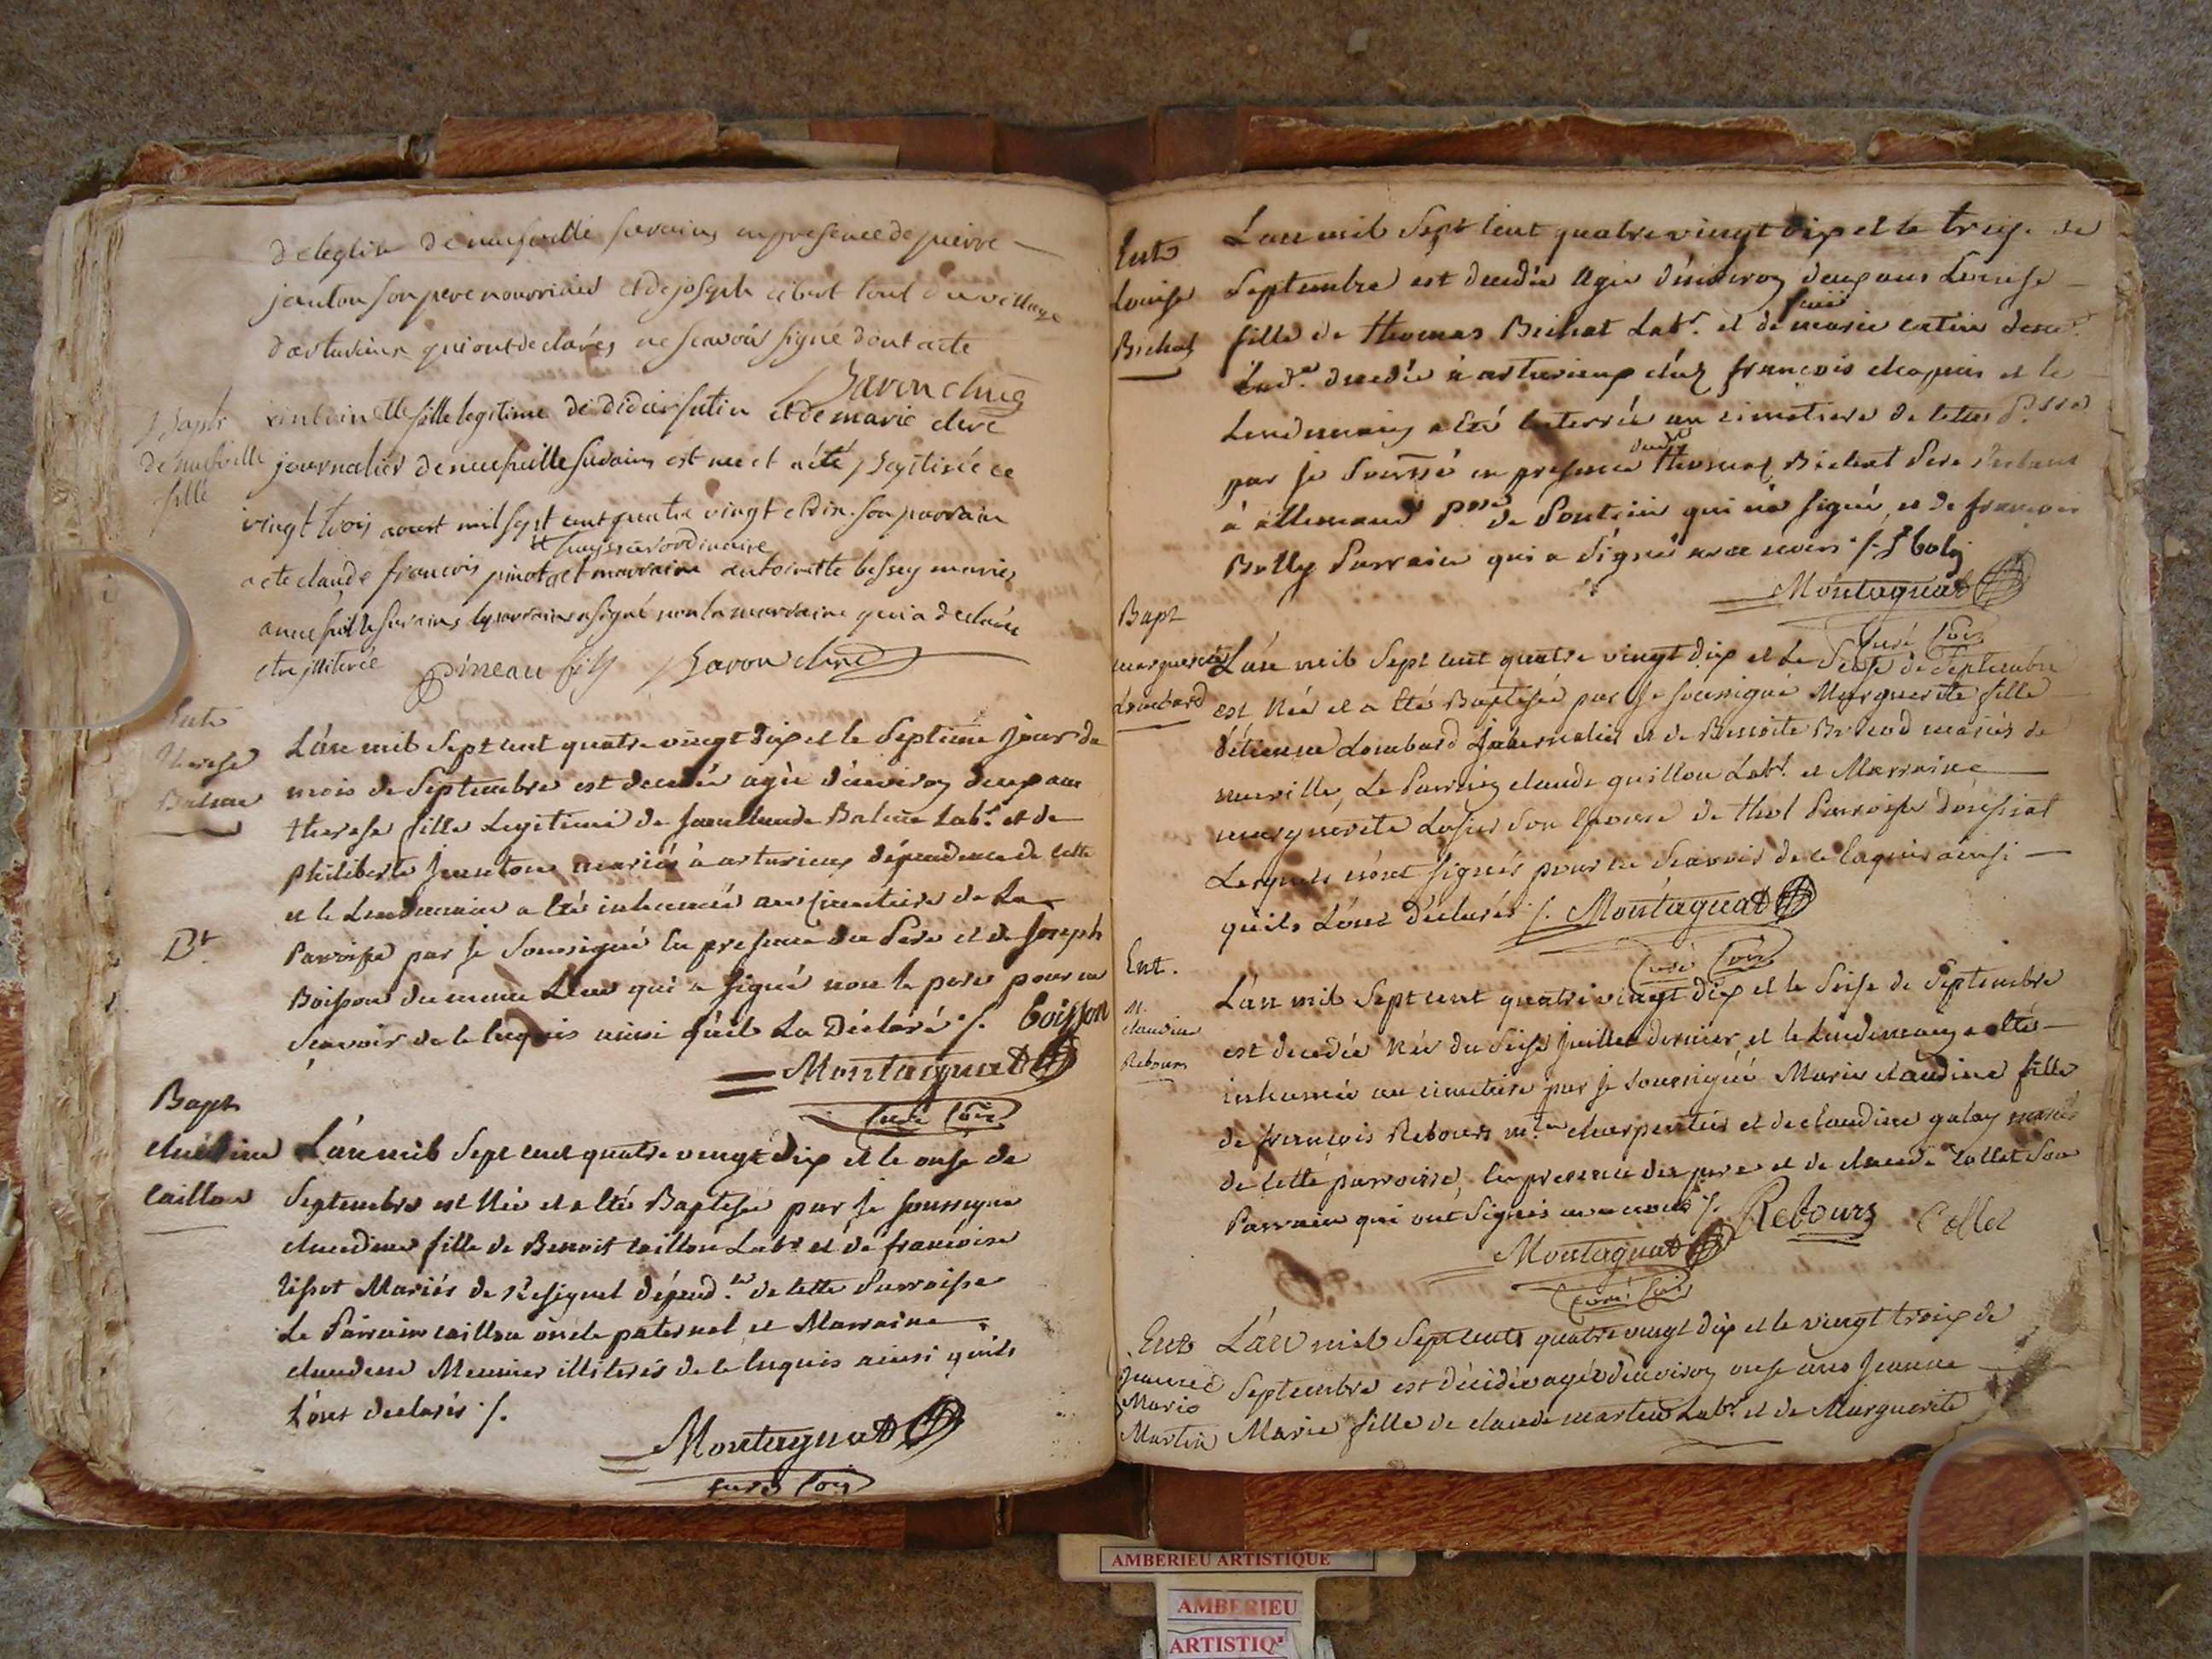 de leglise de neufville survains en presence de pierre
janton son pere nourricier et de joseph tout du village
qui ont declarés ne scavoir signé dont acte
Savon
Bapt
de neufville
fille
fille legitime de didier et de marie clerc
journalier de neufville survains est nee et a été baptisée ce
vingt trois aoust mil sept cent quatre vingt et dix son parrain
huissier ordinaire
a ete claude francois pinot et marraine antoinette bessey mariés
a neufville survains le parrain a signé non la marraine qui a declaré
etre illiterée pineau fils Savon
Ent
Therese
Balme
L'an mil sept cent quatre vingt dix et le septieme jour du
mois de Septembre est decedée agée d'environ deux ans
therese fille Legitime de jean claude Balme Labr. et de
philiberte janton mariés à arturieux dépendence de cette
et le Lendemain a été inhumée au cimetiere de La
Dt.
Parroisse par je soussigné en presence du Pere et de Joseph
Boisson du meme Lieu qui a signé non le pere pour ne
Scavoir de ce enquis ainsi qu'il La Déclaré ./. boisson
Montagnat
curé
Bapt
claudine
caillon
L'an mil sept cent quatre vingt dix et le onse de
Septembre est Née et a été Baptisée par je soussigné
claudine fille de Benoit caillon Labr. et de francoise
tissot Mariés de dépend. de cette Parroisse
Le Parrain caillon oncle paternel et Marraine
claudine Meunier illiterés de ce enquis ainsi quils
L'ont declarés ./.
Montagnat
curé
Ent
Louise
Bichat
L'an mil sept cent quatre vingt dix et le treise de
Septembre est decedée agée d'environ deux ans Louise
fille de thomas Bichat Labr. et de marie
decedée à arturieux chez francois chapuis et le
Lendemain a été enterrée au cimetiere de cette
par je soussé en presence thomas Bichat Pere
à allemand de Poncin qui n'a signé, et de francois
Bolly Parrain qui a signé avec nous ./. f boly
Montagnat
curé
Bapt
marguerite
Lombard
L'an mil sept cent quatre vingt dix et le Seise de Septembre
est Née et a été Baptisée par je soussigné Marguerite fille
d'étienne Lombard journalier et de Benoite Brunod mariés de
neuville, Le Parrain claude guillon Labr. et Marraine
marguerite son epouse de thol Parroisse
Lesquels n'ont signés pour ne Scavoir de ce enquis ainsi
qu'ils L'ont déclarés ./. Montagnat
curé
Ent.
M.
claudine
Rebours
L'an mil sept cent quatre vingt dix et le Seise de Septembre
est decedée Née du Seise juillet dernier, et le Lendemain a été
inhumée au cimetiere par je soussigné Marie claudine fille
de francois Rebours mtre charpentier et de claudine galay mariés
de cette parroisse, en presence du pere et de claude collet Son
Parrain qui ont signés avec nous ./. Rebours Collet
Montagnat
curé
Ent
Jeanne
Marie
Martin
L'an mil sept cent quatre vingt dix et le vingt trois de
Septembre est décédée agée d'environ onse ans Jeanne
Marie fille de claude martin Labr. et de Marguerite
AMBERIEU ARTISTIQUE
AMBERIEU
ARTISTIQ